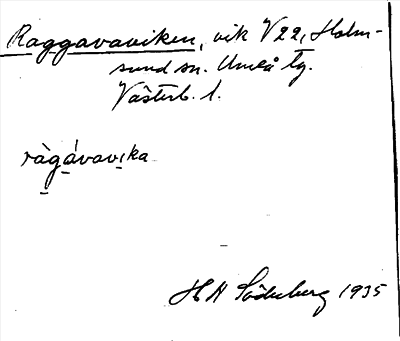 Raggavaviken, vik V22, Holm-
sund sn. Umeå tg.
Västerb. l.
ràgávavika
H A Söderberg 1935